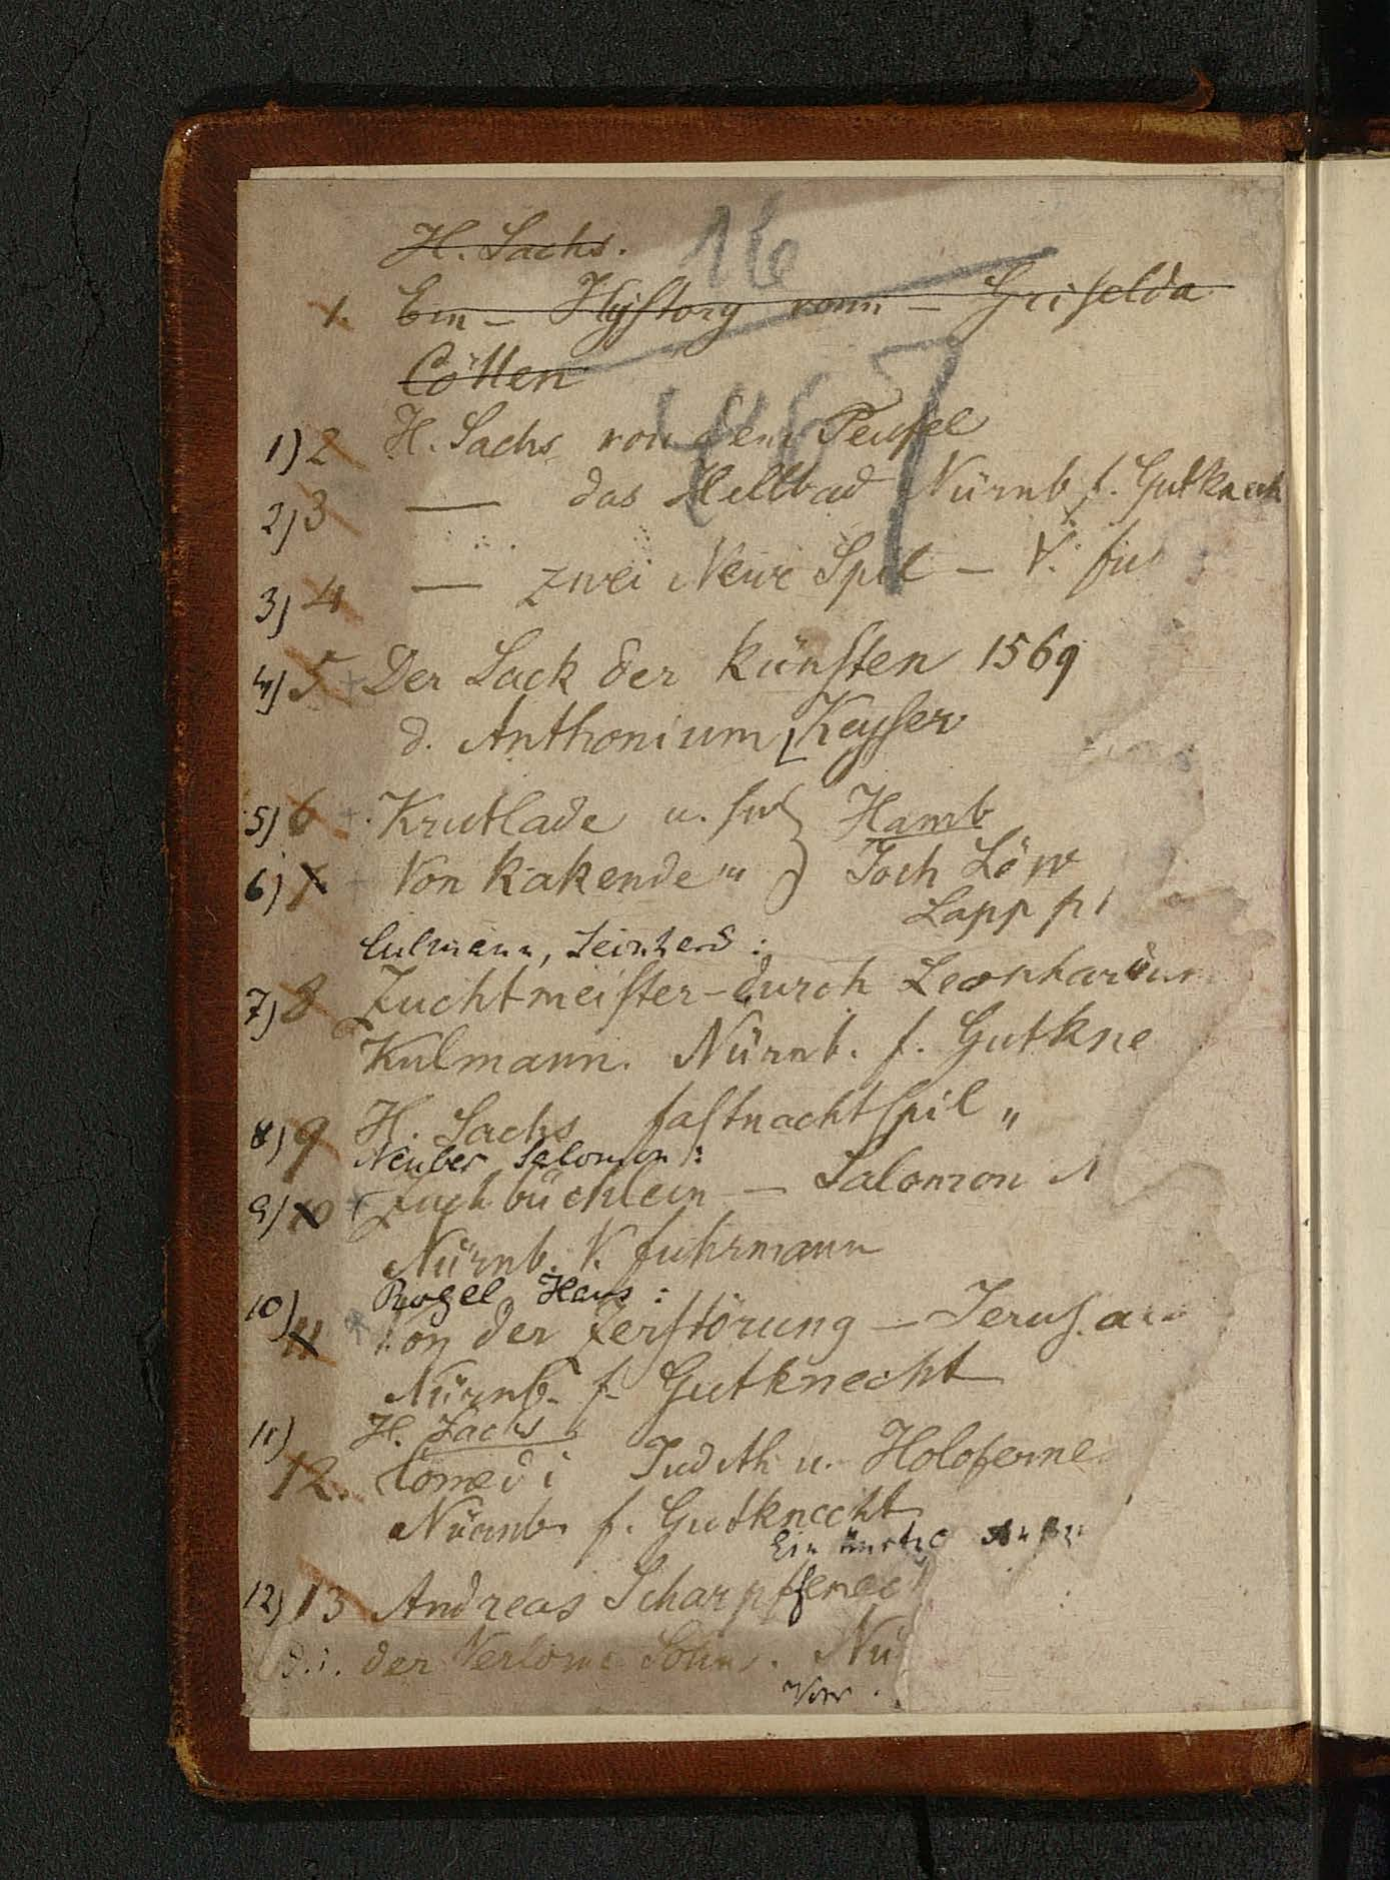 H. Sachs. 16
1. Ein – Hystory vonn – Griselda
Cöllen
467
1) 2 H. Sachs von dem Teufel
2) 3 — das Hellbad Nürnb f. Gutknech
3) 4 — zwei Newe Spil – V.
4) 5 Der Sack der künsten 1569
d. Anthonium Keyser
5) 6 Krutlade u. Hamb
6) 7 Von kakende Joch Löw
Lapp
Culmann,
7) 8 Zuchtmeister – durch Leonhardum
Kulmann. Nürnb. f. Gutkne
8) 9 H. Sachs fastnachtspil "
Neuber Salomon:
9) 10 büchlein – Salomon N
Nürnb. V. fuhrmann
10) Hans:
11 Von der Zerstörung – Jerus.
Nürnb. f. Gutknecht
11) H. Sachs
12. Comedi Judith u. Holoferne
Nürnb. f. Gutknecht
Ein
12) 13 Andreas
d. i. der Verlorne Sohn. Nü